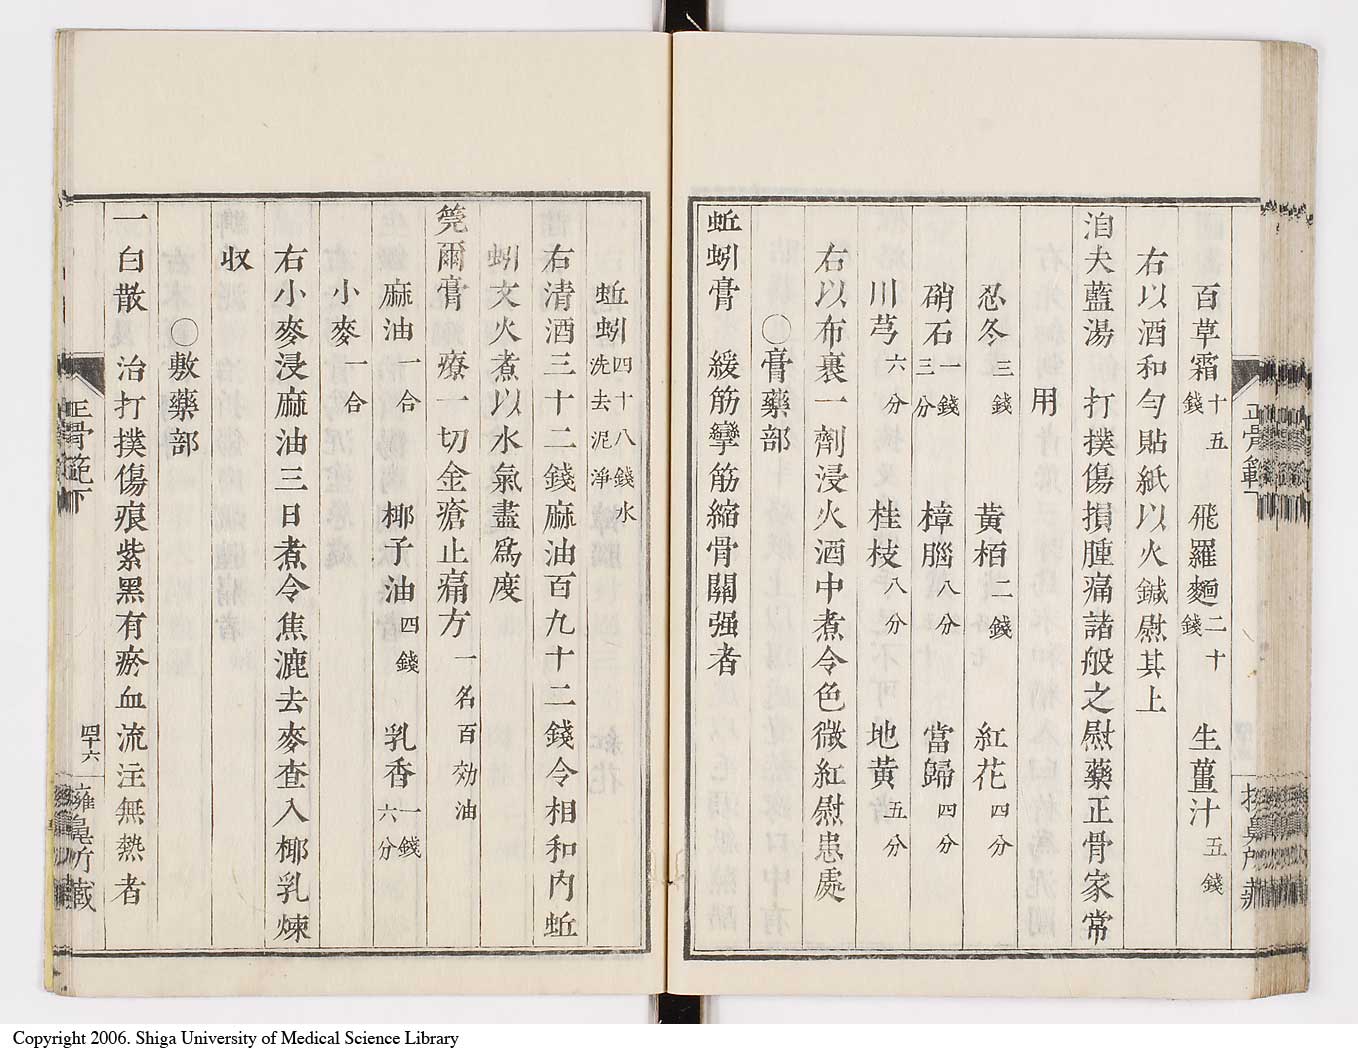 百草霜十五錢 飛羅麵二十錢 生薑汁五錢
右以酒和勻貼紙以火鍼慰其上
洎夫藍湯 打撲傷損腫痛諸般之慰藥正骨家常
用
忍冬三錢 黃栢二錢 紅花四分
硝石一錢三分 樟腦八分 當歸四分
川芎六分 桂枝八分 地黃五分
右以布裹一劑浸火酒中煮令色微紅慰患處
〇膏藥部
蚯蚓膏 緩筋攣筋縮骨關强者
蚯蚓四十八錢水洗去泥淨
右清酒三十二錢麻油百九十二錢令相和內蚯
蚓文火煮以水氣盡爲度
筦爾膏 療一切金瘡止痛方 一名百効油
麻油一合 椰子油四錢 乳香一錢六分
小麥一合
右小麥浸麻油三日煮令焦漉去麥查入椰乳煉
收
〇敷藥部
一白散 治打撲傷痕紫黑有瘀血流注無熱者
正骨範下
四十六
Copyright 2006. Shiga University of Medical Science Library